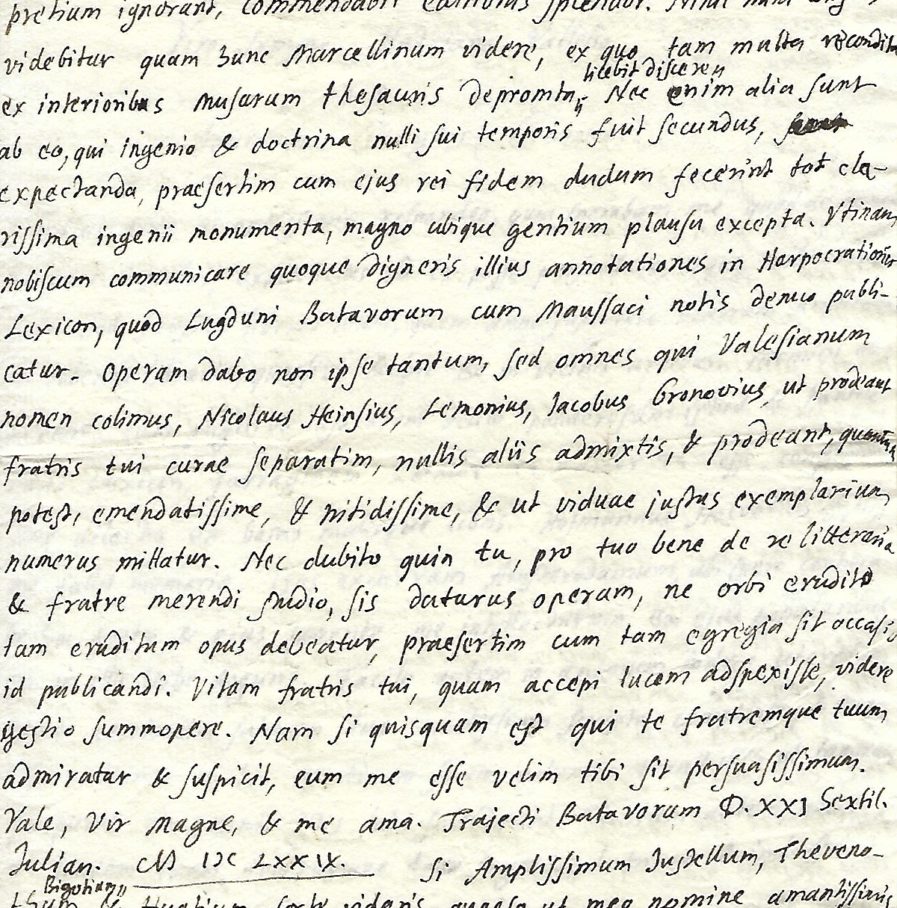 pretium ignorant, commendabit editionis splendor. Nihil
videbitur quam hunc Marcellinum videre, ex quo tam multa recondita
licebit discere
ex interioribus Musarum thesauris depromta. Nec enim alia sunt
ab eo, qui ingenio & doctrina nulli sui temporis fuit secundus,
expectanda, praesertim cum ejus rei fidem dudum fecerint tot cla-
rissima ingenii monumenta, magno ubique gentium plausu excepta. Vtinam
nobiscum communicare quoque digneris illius annotationes in Harpocrationis
Lexicon, quod Lugduni Batavorum cum Maussaci notis denuo publi-
catur. Operam dabo non ipse tantum, sed omnes qui Valesianum
nomen colimus, Nicolaus Heinsius, Lemonius, Iacobus Gronovius, ut prodeant
fratris tui curae separatim, nullis aliis admixtis, & prodeant, quantum
potest, emendatissime, & nitidissime, & ut viduae justus exemplarium
numerus mittatur. Nec dubito quin tu, pro tuo bene de re litteraria
& fratre merendi studio, sis daturus operam, ne orbi erudito
tam eruditum opus debeatur, praesertim cum tam egregia sit occasio
id publicandi. Vitam fratris tui, quam accepi lucem adspexisse, videre
gestio summopere. Nam si quisquam est qui te fratremque tuum
admiratur & suspicit, eum me esse velim tibi sit persuasissimum.
Vale, Vir Magne, & me ama. Trajecti Batavorum D. XXI Sextil.
Julian. CIↃ IↃC LXXIX. Si Amplissimum Justellum, Theveno-
Bigotium
tium & Huetium forte videris, quaeso ut meo nomine amantissimis